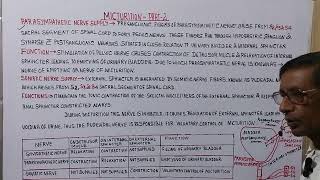 MICTURITION - PART-2
PARASYMPATHETIC NERVE SUPPLY - PREGANGLIONIC FIBERS OF PARASYMPATHETIC NERVE ARISE FROM S2, S3 & S4
SACRAL SEGMENT OF SPINAL CORD & FORM PELVIC NERVE. THESE FIBERS RUN THROUGH HYPOGASTRIC GANGLION &
SYNAPSE & POSTGANGLIONIC NEURONS SITUATED IN CLOSE RELATION TO URINARY BLADDER & INTERNAL SPHINCTER.
FUNCTION - STIMULATION OF PELVIC NERVE CAUSES CONTRACTION OF DETRUSOR MUSCLE & RELAXATION OF INTERNAL
SPHINCTER LEADING TO EMPTYING OF URINARY BLADDER. DUE TO THIS PARASYMPATHETIC NERVE IS KNOWN AS
NERVE OF EMPTYING OR NERVE OF MICTURITION.
SOMATIC NERVE SUPPLY - EXTERNAL SPHINCTER IS INNERVATED BY SOMATIC NERVE FIBRES KNOWN AS PUDENDAL NERVE
WHICH ARISES FROM S2, S3 & S4 SACRAL SEGMENTS OF SPINAL CORD.
FUNCTIONS - MAINTAINS THE TONIC CONTRACTION OF THE SKELETAL MUSCLE FIBERS OF THE EXTERNAL SPHINCTER &
SPHINCTER CONTRACTED ALWAYS.
DURING MICTURITION THIS NERVE IS INHIBITED, IT CAUSES RELAXATION OF EXTERNAL SPHINCTER LEADING TO
VOIDING OF URINE. THUS THE PUDENDAL NERVE IS RESPONSIBLE FOR VOLUNTARY CONTROL OF MICTURITION.
NERVE ON DETRUSOR MUSCLE ON INTERNAL SPHINCTER ON EXTERNAL SPHINCTER FUNCTION
SYMPATHETIC NERVE RELAXATION CONTRACTION NOT SUPPLIED FILLING OF URINARY BLADDER
PARASYMPATHETIC NERVE CONTRACTION RELAXATION NOT SUPPLIED EMPTYING OF URINARY BLADDER
SOMATIC NERVE NOT SUPPLIED NOT SUPPLIED CONTRACTION VOLUNTARY CONTROL OF MICTURITION